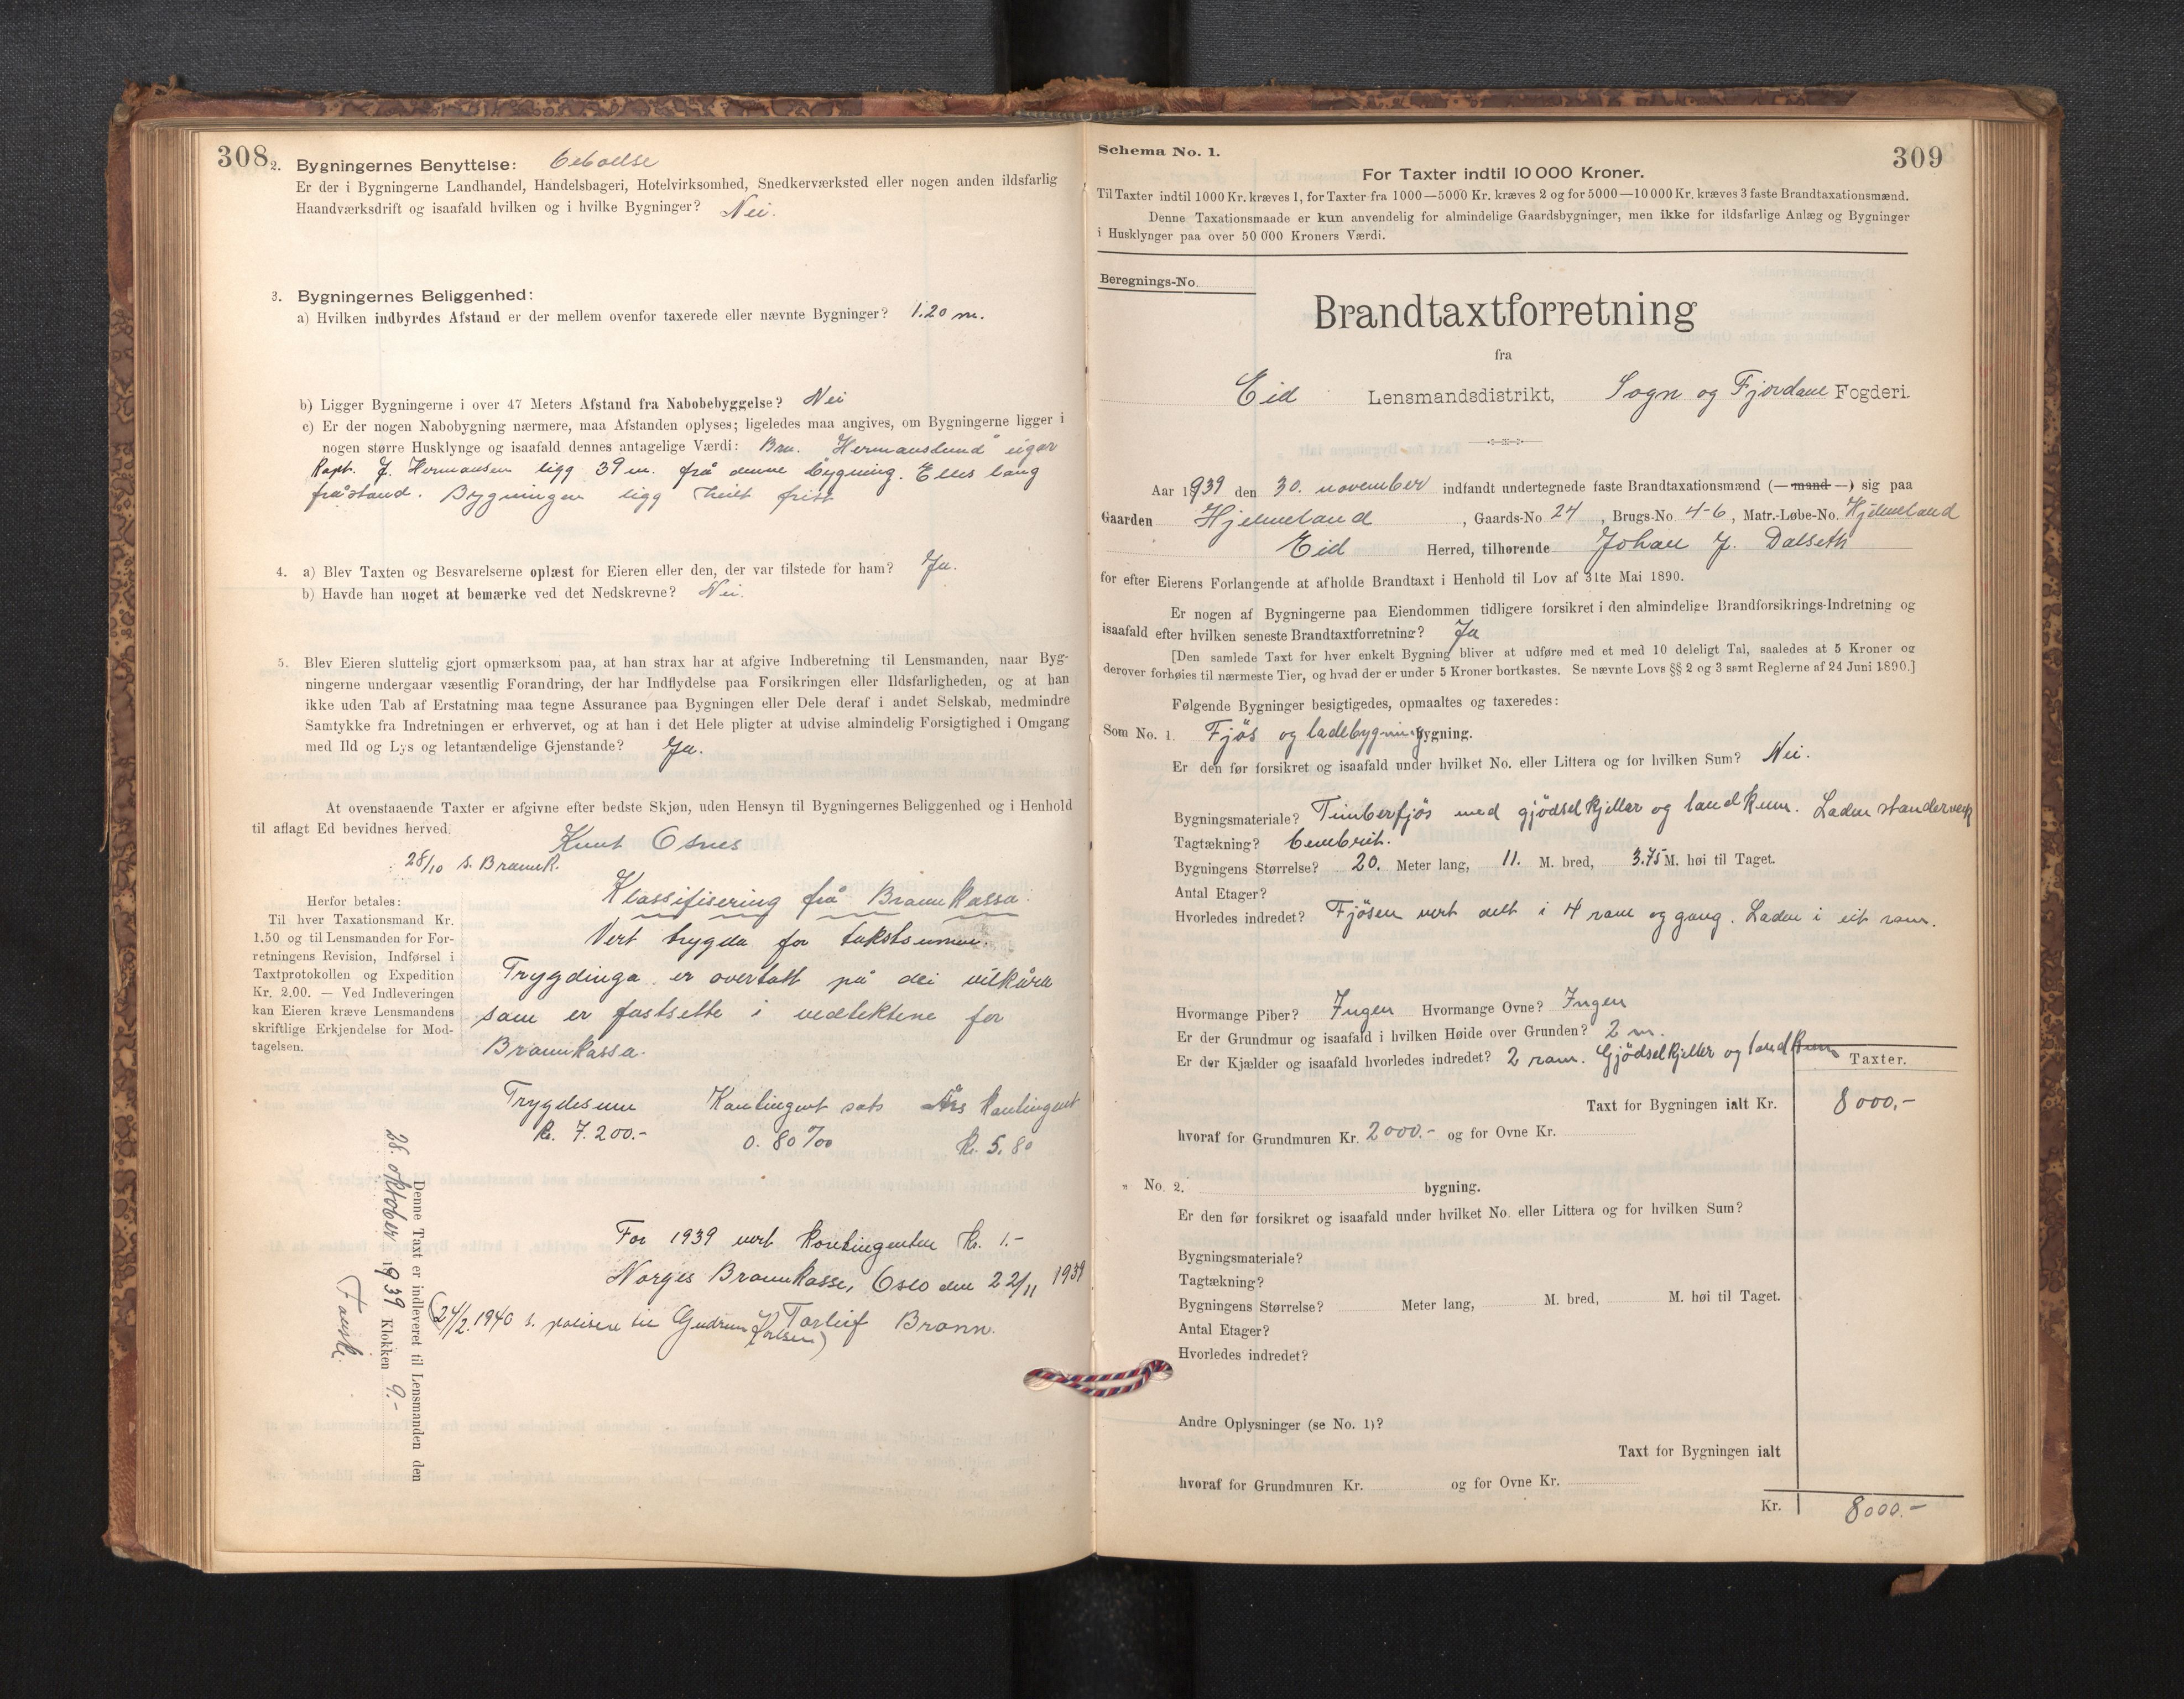 308
2. Bygningernes Benyttelse: beboelse
Er der i Bygningerne Landhandel, Handelsbageri, Hotelvirksomhed, Snedkerværksted eller nogen anden ildsfarlig
Haandværksdrift og isaafald hvilken og i hvilke Bygninger? Nei.
3. Bygningernes Beliggenhed:
a) Hvilken indbyrdes Afstand er der mellem ovenfor taxerede eller nævnte Bygninger? 1.20 m.
b) Ligger Bygningerne i over 47 Meters Afstand fra Nabobebyggelse? Nei
c) Er der nogen Nabobygning nærmere, maa Afstanden oplyses; ligeledes maa angives, om Bygningerne ligger i
nogen større Husklynge og isaafald dennes antagelige Værdi: Bru. "Hermanslund" eigar
Kapt. J. Hermansen ligg 39 m. frå denne bygning. Elles lang
fråstand. Bygningen ligg heilt fritt
4. a) Blev Taxten og Besvarelserne oplæst for Eieren eller den, der var tilstede for ham? Ja.
b) Havde han noget at bemærke ved det Nedskrevne? Nei.
5. Blev Eieren sluttelig gjort opmærksom paa, at han strax har at afgive Indberetning til Lensmanden, naar Byg-
ningerne undergaar væsentlig Forandring, der har Indflydelse paa Forsikringen eller Ildsfarligheden, og at han
ikke uden Tab af Erstatning maa tegne Assurance paa Bygningen eller Dele deraf i andet Selskab, medmindre
Samtykke fra Indretningen er erhvervet, og at han i det Hele pligter at udvise almindelig Forsigtighed i Omgang
med Ild og Lys og letantændelige Gjenstande? Ja.
At ovenstaaende Taxter er afgivne efter bedste Skjøn, uden Hensyn til Bygningernes Beliggenhed og i Henhold
til aflagt Ed bevidnes herved.
Knut Osnes
28/10 s. Brannk.
Herfor betales:
Til hver Taxationsmand Kr.
1.50 og til Lensmanden for For-
retningens Revision, Indførsel i
Taxtprotokollen og Expedition
Kr. 2.00. — Ved Indleveringen
kan Eieren kræve Lensmandens
skriftlige Erkjendelse for Mod-
tagelsen.
Klassifisering frå Brannkassa.
Vert trygda for takstsummen.
Trygdinga er overtatt på dei vilkåra
som er fastsette i vedtektene for
Brannkassa.
Trygdesum Kontingent sats Års kontingent
kr. 7.200.- 0.80 ‰ kr. 5.80
For 1939 vert kontingenten kr. 1.-
Norges Brannkasse, Oslo den 22/11 1939
Torleif Bronn.
(24/2. 1940 s. polisen til Gudrun
Denne Taxt er indleveret til Lensmanden den
28. oktober 1939 Klokken 9.-
309
Schema No. 1.
For Taxter indtil 10 000 Kroner.
Til Taxter indtil 1000 Kr. kræves 1, for Taxter fra 1000—5000 Kr. kræves 2 og for 5000—10 000 Kr. kræves 3 faste Brandtaxationsmænd.
Denne Taxationsmaade er kun anvendelig for almindelige Gaardsbygninger, men ikke for ildsfarlige Anlæg og Bygninger
i Husklynger paa over 50 000 Kroners Værdi.
Beregnings-No.
Brandtaxtforretning
fra
Eid Lensmandsdistrikt, Sogn og Fjordane Fogderi.
Aar 1939 den 30. november indfandt undertegnede faste Brandtaxationsmænd (— mand —) sig paa
Gaarden Hjelmeland, Gaards-No 24, Brugs-No 4-6, Matr.-Løbe-No. Hjelmeland
Eid Herred, tilhørende Johan J. Dalseth
for efter Eierens Forlangende at afholde Brandtaxt i Henhold til Lov af 31te Mai 1890.
Er nogen af Bygningerne paa Eiendommen tidligere forsikret i den almindelige Brandforsikrings-Indretning og
isaafald efter hvilken seneste Brandtaxtforretning? Ja
[Den samlede Taxt for hver enkelt Bygning bliver at udføre med et med 10 deleligt Tal, saaledes at 5 Kroner og
derover forhøies til nærmeste Tier, og hvad der er under 5 Kroner bortkastes. Se nævnte Lovs §§ 2 og 3 samt Reglerne af 24 Juni 1890.]
Følgende Bygninger besigtigedes, opmaaltes og taxeredes:
Som No. 1. Fjös og ladebygning bygning.
Er den før forsikret og isaafald under hvilket No. eller Littera og for hvilken Sum? Nei.
Bygningsmateriale? Timberfjös med gjödselkjellar og landkum. Laden standerverk
Tagtækning? Cembrit.
Bygningens Størrelse? 20. Meter lang, 11. M. bred, 3.75 M. høi til Taget.
Antal Etager?
Hvorledes indredet? Fjösen vert delt i 4 rom og gang. Laden i eit rom.
Hvormange Piber? Ingen Hvormange Ovne? Ingen
Er der Grundmur og isaafald i hvilken Høide over Grunden? 2 m.
Er der Kjælder og isaafald hvorledes indredet? 2 rom. Gjödselkjellar og landkum
Taxter.
Taxt for Bygningen ialt Kr. 8000,-
hvoraf for Grundmuren Kr. 2000.- og for Ovne Kr.
" No. 2. bygning.
Er den før forsikret og isaafald under hvilket No. eller Littera og for hvilken Sum?
Bygningsmateriale?
Tagtækning?
Bygningens Størrelse? Meter lang, M. bred, M. høi til Taget.
Antal Etager?
Hvorledes indredet?
Andre Oplysninger (se No. 1)?
Taxt for Bygningen ialt
hvoraf for Grundmuren Kr. og for Ovne Kr.
Kr. 8000.-